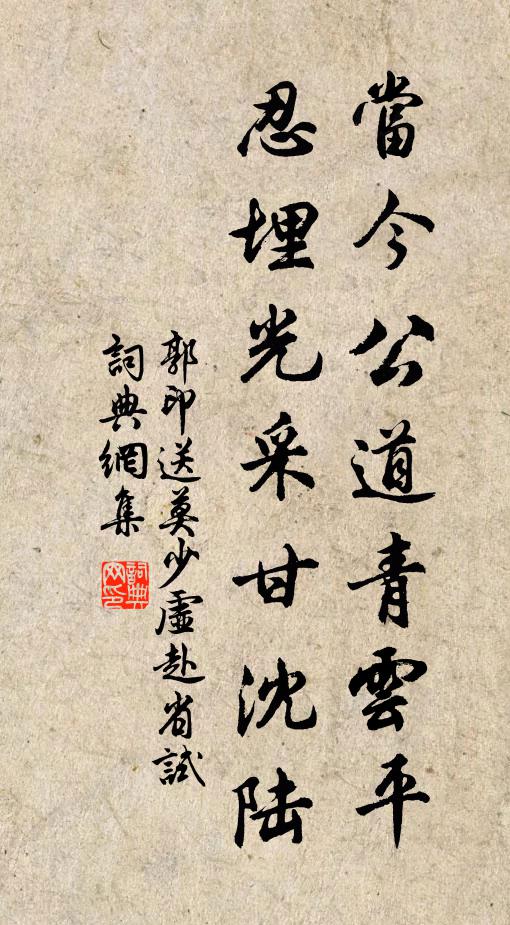 當今公道青雲平
忍埋光采甘沈陆
郭印送莫少虛赴省試
詞典網集
詞典网印